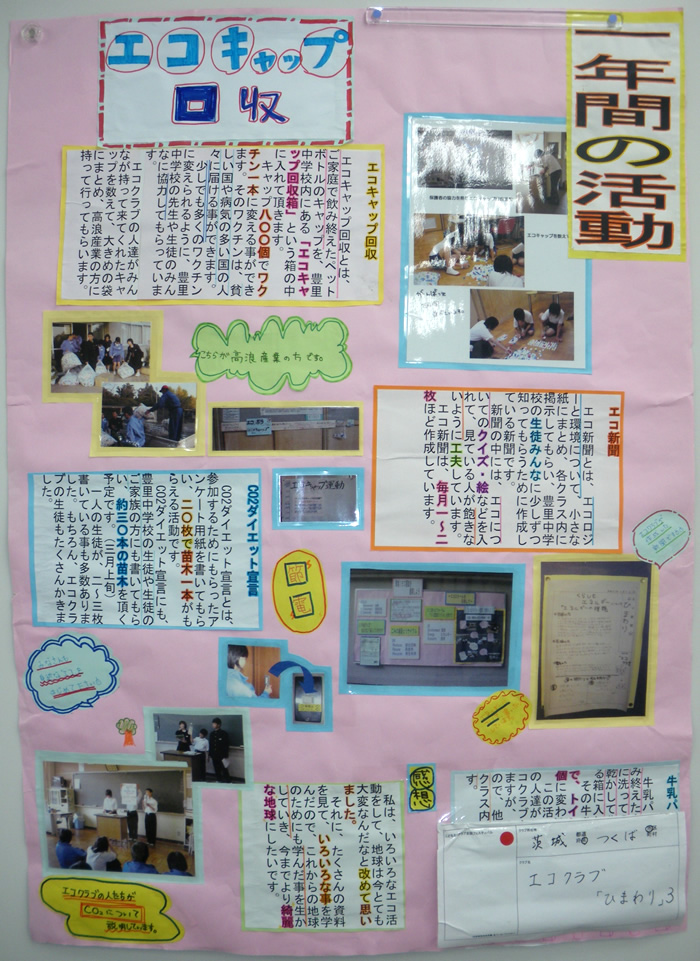 一年間の活動
エコキャップ
回収
エコキャップ回収
エコキャップ回収とは、
ご家庭で飲み終えたペット
ボトルのキャップを、豊里
中学校内にある「エコキャ
ップ回収箱」という箱の中
に入れて頂きます。
キャップ八〇〇個でワク
チン一本に変える事ができ
ます。そのワクチンは、貧
しい国や病気の多い国の人
々に届ける事ができます。
少しでも多くのワクチン
に変えられるように、豊里
中学校の先生や生徒のみん
なに協力してもらっていま
す。
エコクラブの人達がみん
なが持って来てくれたキャ
ップを数えて、大きめの袋
にまとめ、高浪産業の方に
持って行ってもらいます。
こちらが高浪産業の方です。
エコ新聞
エコ新聞とは、エコロジ
ーと環境について、小さな
紙にまとめ、各クラス内に
掲示してもらい、豊里中学
校の生徒みんなに少しずつ
知ってもらうために作成し
ている新聞です。
新聞の中には、エコにつ
いてのクイズ・絵などを入
れて、見ている人が飽きな
いように工夫しています。
エコ新聞は、毎月一～二
枚ほど作成しています。
エコキャップ運動
CO2ダイエット宣言
CO2ダイエット宣言とは、
参加するためにもらったア
ンケート用紙を書いてもら
い、二〇枚で苗木一本がも
らえる活動です。
CO2ダイエット宣言にも、
豊里中学校の生徒や生徒の
ご家族の方にも書いてもら
い、約三〇本の苗木を頂く
予定です。(三月上旬)
一人の生徒が、二～三枚
書いている事も多数ありま
した。もちろん、エコクラ
ブの生徒もたくさんかきま
した。
節電
エコクラブの人たちが
CO2について
説明しています。
感想
私は、いろいろなエコ活
動をして、地球は今とても
大変なんだなと改めて思い
ました。
それに、たくさんの資料
を見て、いろいろな事を学
んだので、これからの地球
のためにも学んだ事を生か
していき、今までより綺麗
な地球にしたいです。
牛乳パ
牛乳パ
み終えた
に洗って
乾かして
る箱に入
その牛
で、トイ
個に変わ
この活
の人達が
コクラブ
ますが、
ので、他
クラス内
茨城 つくば
エコクラブ
「ひまわり」3